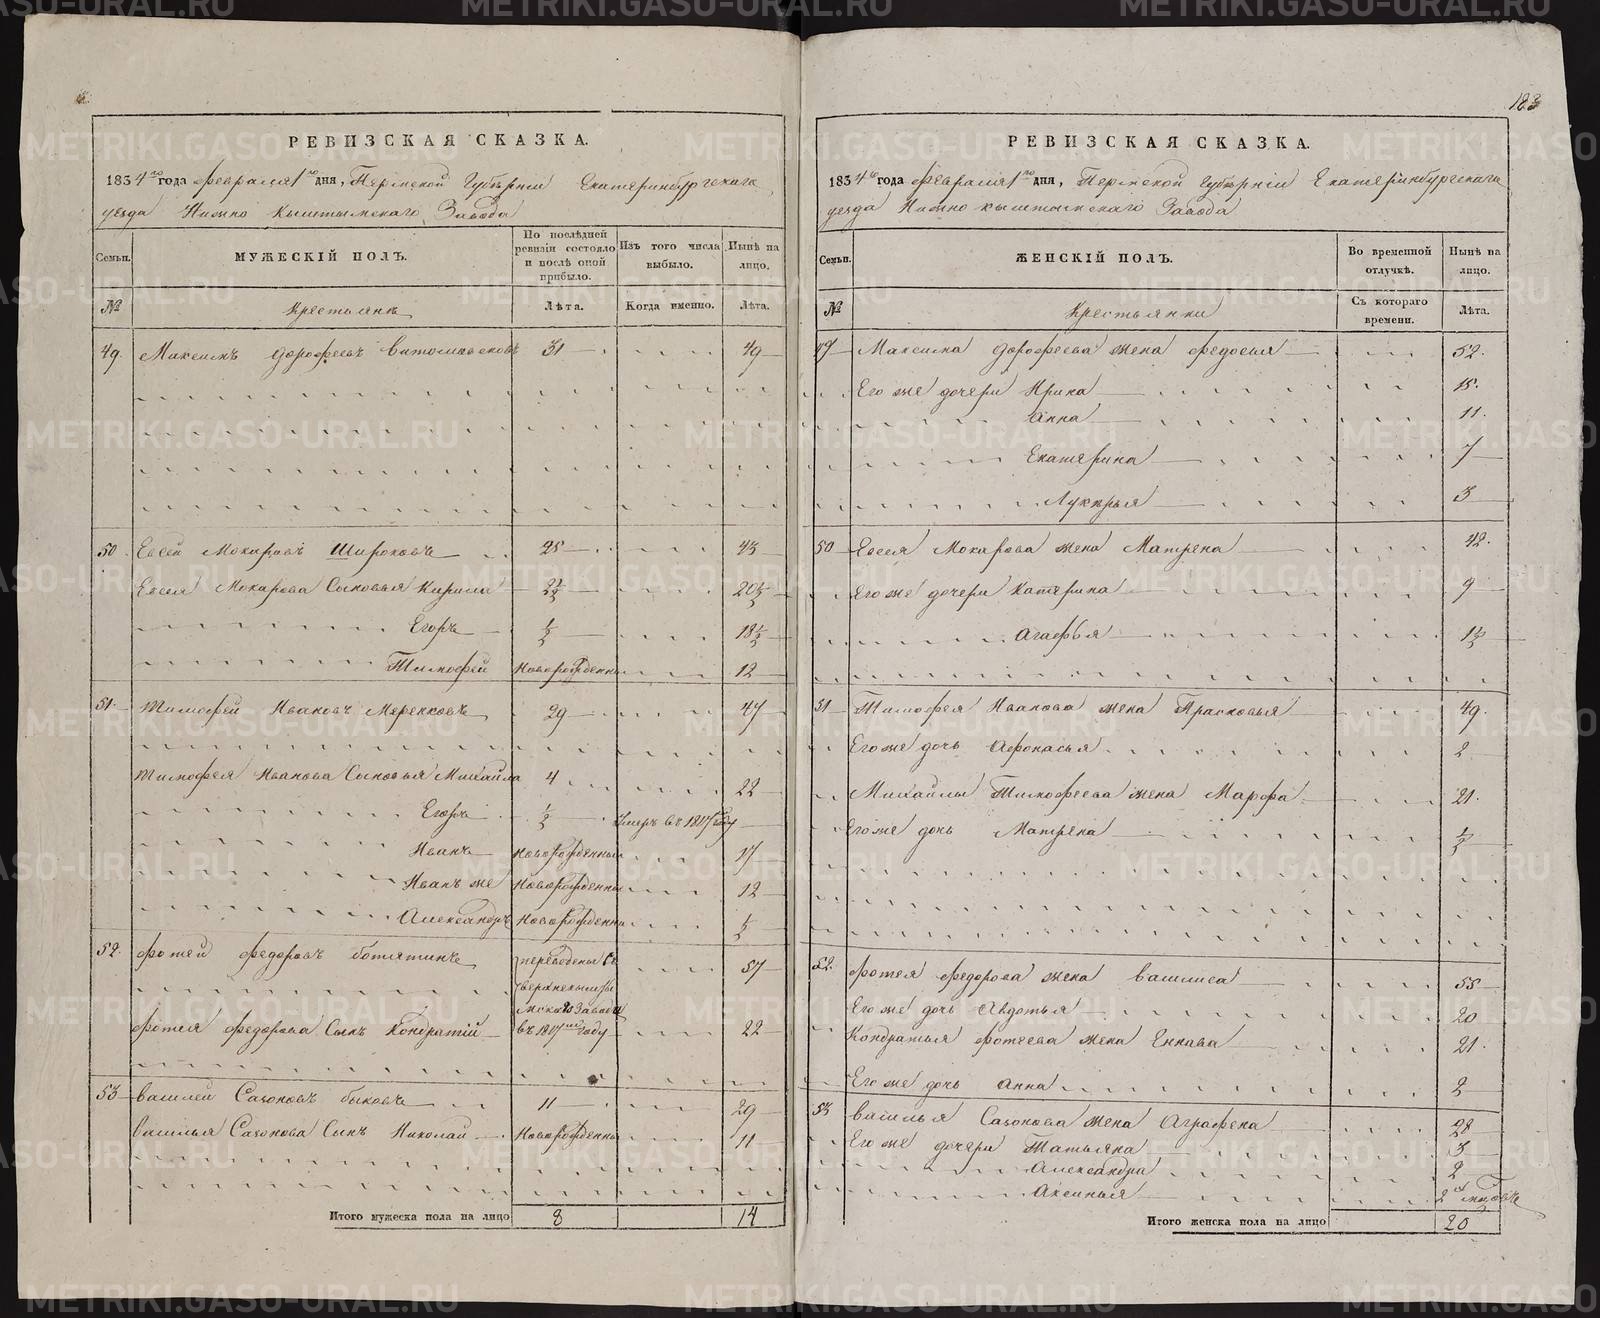 183
РЕВИЗСКАЯ СКАЗКА.
1834го года февраля 1го дня, Пермской Губѣрніи Екатеринбургскаго
уезда Нижно Кыштымскаго Завода
Семьи.
МУЖЕСКІЙ ПОЛЪ.
По послѣдней ревизіи состояло и послѣ оной прибыло.
Изъ того числа выбыло.
Нынѣ на лицо.
№
Крестьянъ
Лѣта.
Когда именно.
Лѣта.
49. Максимъ Дорофеевъ 31 49
50 Евсей Мокаровъ Широковъ 25 43
Евсея Мокарова Сыновья Кирила 2½ 20½
Егоръ ½ 18½
Тимофей Новорожденны 12
51. Тимофей Ивановъ Меренковъ 29 47
Тимофея Иванова Сыновья Михайла 4 22
Егоръ ½ Умеръ въ 1817 году
Иванъ Новорожденны 17
Иванъ же Новорожденны 12
Александръ Новорожденны ½
52. Фотей Федоровъ Ботятинъ переведены съ 57
Верхнекышты
мскаго Завода
Фотея Федорова Сынъ Кондратій въ 1817мъ году 22
53 Василей Сазоновъ Быковъ 11 29
Василья Сазонова Сынъ Николай Новорожденны 11
Итого мужеска пола на лицо 8 14
РЕВИЗСКАЯ СКАЗКА.
1834го года февраля 1го дня, Пермской Губѣрніи Екатеринбургскаго
уезда Нижно Кыштымскаго Завода
Семьи.
ЖЕНСКІЙ ПОЛЪ.
Во временной отлучкѣ.
Нынѣ на лицо.
№
Крестьянки
Съ котораго времени.
Лѣта.
49 Максима Дорофеева жена Федосья 52.
Его же дочери Ирина 15.
Анна 11.
Екатерина 7
Лукерья 3
50 Евсея Мокарова жена Матрена 42.
Его же дочери Катерина 9
Агафья 1½
51 Тимофея Иванова жена Прасковья 49.
Его же дочь Афонасья 2
Михайлы Тимофеева жена Марфа 21.
Его же дочь Матрена ½
52. Фотея Федорова жена Василиса 55
Его же дочь Авдотья 20
Кондратья Фотеева жена 21.
Его же дочь Анна 2
53 Василья Сазонова жена Аграфена 28
Его же дочери Татьяна 3
Александра 2
Аксинья 2
Итого женска пола на лицо 20
METRIKI.GASO-URAL.RU